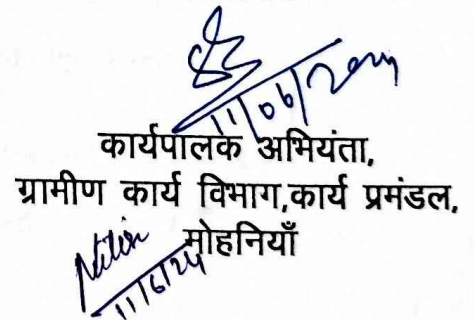 11/06/2024
कार्यपालक अभियंता,
ग्रामीण कार्य विभाग,कार्य प्रमंडल,
मोहनियाँ
Nitin
11/6/24